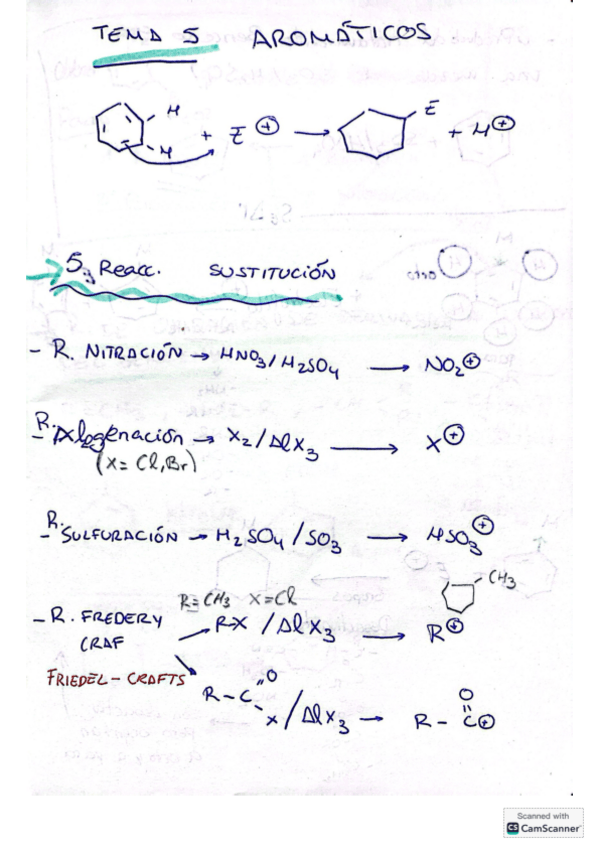 TEMA 5 AROMÁTICOS
H
H + E⊕ → E + H⊕
→ 5 Reacc. SUSTITUCIÓN
- R. NITRACIÓN → HNO3/H2SO4 → NO2⊕
- R. Alogenación → X2/AlX3 → X⊕
(X= Cl, Br)
- R. SULFURACIÓN → H2SO4/SO3 → HSO3⊕
CH3
R=CH3 X=Cl
- R. FREDERY R-X / AlX3 → R⊕
CRAF
FRIEDEL-CRAFTS
R-C=O
X / AlX3 → R-C⊕
O
Scanned with
CS CamScanner